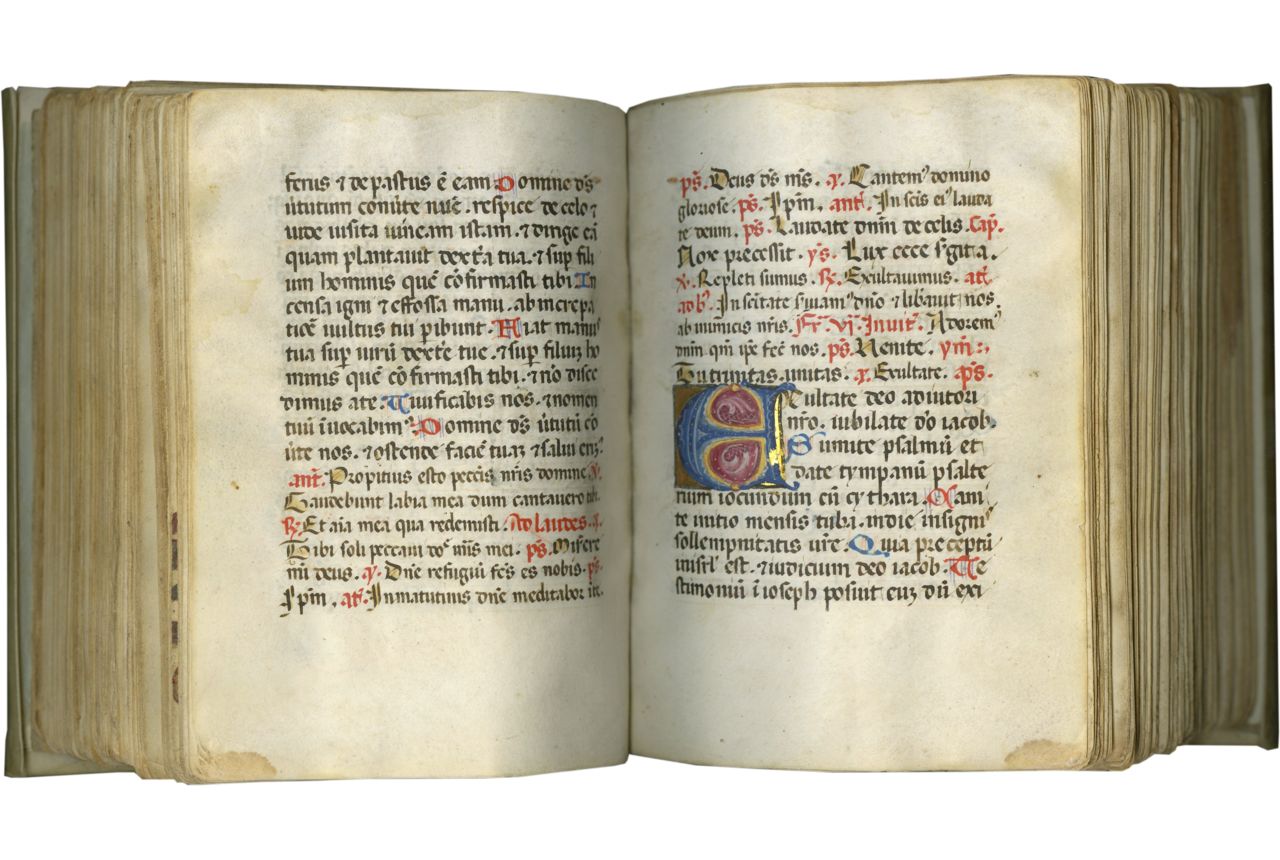 ferus ⁊ depastus ē eam Domine ds̄
ūtutum conūte nūc. respice de celo ⁊
uide uisita uineam istam. ⁊ dirige eā
quam plantauit dext̄a tua. ⁊ suꝑ fili
um hominis quē cōfirmasti tibi In
censa igni ⁊ effossa manu. ab increpa
tiōe uultus tui ꝑibunt. Fiat manus
tua suꝑ uirū dext̄e tue. ⁊ suꝑ filiuꝫ ho
minis quē cōfirmasti tibi. ⁊ nō disce
dimus a te. Uiuificabis nos. ⁊ nomen
tuū īuocabimꝰ Domine ds̄ ūtutū cō
ūte nos. ⁊ ostende faciē tuaꝫ ⁊ salui erimꝰ.
ant̄. Propitius esto pecc̄is nr̄is domine ℣.
Gaudebunt labia mea dum cantauero tibi.
℟. Et aīa mea qua redemisti. Ad laudes. ℣.
Tibi soli peccaui dn̄e mis̄ mei. ps̄. Misere
mī deus. ℣. Dn̄e refugiū fc̄s es nobis. ps̄.
Ip̄m. at̄. In matutinis dn̄e meditabor ī te.
ps̄. Deus ds̄ ms̄. ℣. Cantemꝰ domino
gloriose. ps̄. Ip̄m. ant̄. In sc̄is eiꝰ lauda
te deum. ps̄. Laudate dnm̄ de celis. Cap̄.
Nox precessit. ys̄. Lux ecce sꝰgit a.
℣. Repleti sumus. ℟. Exultauimus. at̄.
ad b̄. In sc̄itate sꝰuiamꝰ dn̄o ⁊ lib̄auit nos.
ab inimicis nr̄is. Fr̄. vj. Inuit̄. Adoremꝰ
dnm̄ qm̄ ip̄e fec̄ nos. ps̄. Uenite. ym̄.
Tu trinitas unitas. ℣. Exultate. ps̄.
Exultate deo adiutori
nr̄o. iubilate dō iacob.
Sumite psalmū et
date tympanū psalte
rium iocundum cū cythara. Cani
te initio mensis tuba. in die insigniꝰ
sollempnitatis ūre. Quia preceptū
in isrl̄ est. ⁊ iudicium deo iacob. Te
stimoniū ī ioseph posuit euꝫ dū exi